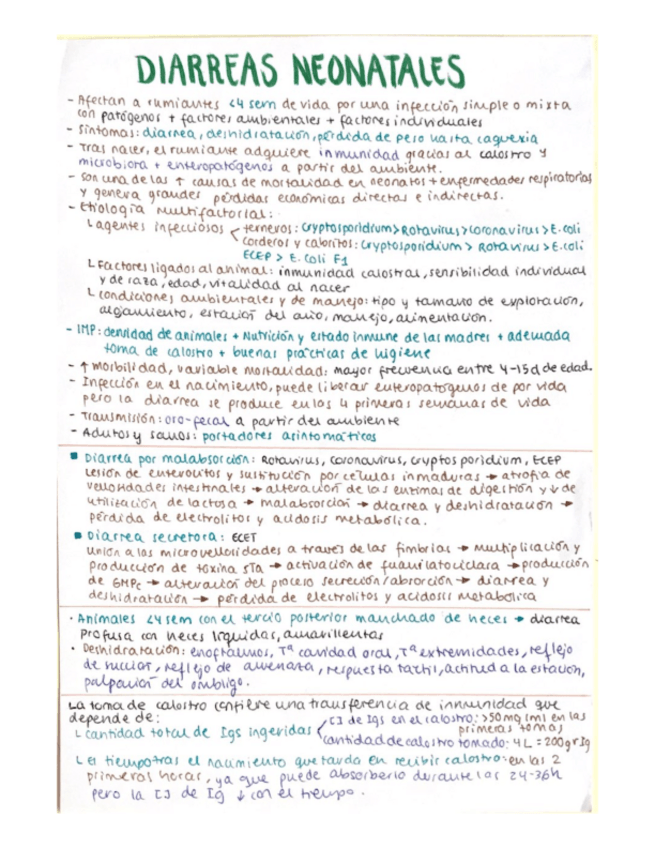 DIARREAS NEONATALES
- Afectan a rumiantes <4 sem de vida por una infección simple o mixta
con patógenos + factores ambientales + factores individuales
- Síntomas: diarrea, deshidratación, pérdida de peso hasta caquexia
- Tras nacer, el rumiante adquiere inmunidad gracias al calostro y
microbiota + enteropatógenos a partir del ambiente.
- Son una de las ↑ causas de mortalidad en neonatos + enfermedades respiratorias
y genera grandes pérdidas económicas directas e indirectas.
- Etiología multifactorial:
└ agentes infecciosos < terneros: Cryptosporidium > Rotavirus > coronavirus > E.coli
corderos y cabritos: Cryptosporidium > Rotavirus > E.coli
ECEP > E. Coli F1
└ Factores ligados al animal: inmunidad calostral, sensibilidad individual
y de raza, edad, vitalidad al nacer
└ condiciones ambientales y de manejo: tipo y tamaño de explotación,
alojamiento, estación del año, manejo, alimentación.
- IMP: densidad de animales + Nutrición y estado inmune de las madres + adecuada
toma de calostro + buenas prácticas de higiene
- ↑ Morbilidad, variable mortalidad: mayor frecuencia entre 4-15d de edad.
- Infección en el nacimiento, puede liberar enteropatógenos de por vida
pero la diarrea se produce en las 4 primeras semanas de vida
- Transmisión: oro-fecal a partir del ambiente
- Adultos y sanos: portadores asintomáticos
■ Diarrea por malabsorción: Rotavirus, coronavirus, cryptosporidium, ECEP
Lesión de enterocitos y sustitución por células inmaduras → atrofia de
vellosidades intestinales → alteración de las enzimas de digestión y ↓ de
utilización de lactosa → malabsorción → diarrea y deshidratación →
pérdida de electrolitos y acidosis metabólica.
■ Diarrea secretora: ECET
Unión a las microvellosidades a través de las fimbrias → multiplicación y
producción de toxina STa → activación de guanilatociclasa → producción
de GMPc → alteración del proceso secreción/absorción → diarrea y
deshidratación → pérdida de electrolitos y acidosis metabólica
· Animales <4 sem con el tercio posterior manchado de heces → diarrea
profusa con heces líquidas, amarillentas
· Deshidratación: enoftalmos, Tª cavidad oral, Tª extremidades, reflejo
de succión, reflejo de amenaza, respuesta táctil, actitud a la estación,
palpación del ombligo.
La toma de calostro confiere una transferencia de inmunidad que
depende de:
└ cantidad total de Igs ingeridas < [] de Igs en el calostro: >50mg/ml en las
primeras tomas
cantidad de calostro tomado: 4L = 200gr Ig
└ el tiempo tras el nacimiento que tarda en recibir calostro: en las 2
primeras horas, ya que puede absorberlo durante las 24-36h
pero la [] de Ig ↓ con el tiempo.